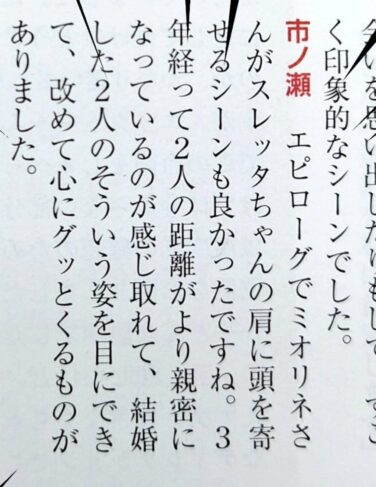 会いを思い出したりもして、すご
く印象的なシーンでした。
市ノ瀬 エピローグでミオリネさ
んがスレッタちゃんの肩に頭を寄
せるシーンも良かったですね。3
年経って2人の距離がより親密に
なっているのが感じ取れて、結婚
した2人のそういう姿を目にでき
て、改めて心にグッとくるものが
ありました。